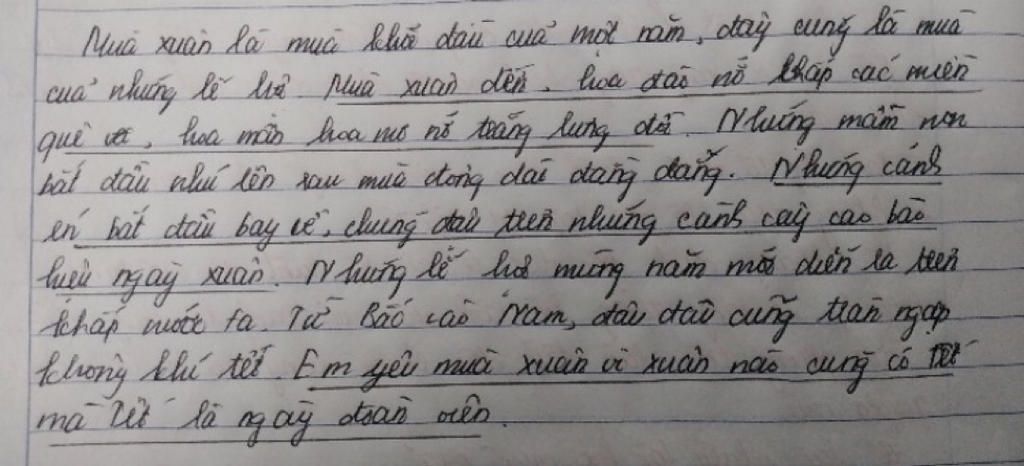 Mùa xuân là mùa khởi đầu của một năm, đây cũng là mùa
của những lễ hội. Mùa xuân đến, hoa đào nở khắp các miền
quê, hoa mận hoa mơ nở trắng lưng đồi. Những mầm non
bắt đầu nhú lên sau mùa đông dài dằng dẵng. Những cánh
én bắt đầu bay về, chúng đậu trên những cành cây cao báo
hiệu ngày xuân. Những lễ hội mừng năm mới diễn ra trên
khắp nước ta. Từ Bắc vào Nam, đâu đâu cũng tràn ngập
không khí tết. Em yêu mùa xuân vì xuân nào cũng có tết
mà Tết là ngày đoàn viên.